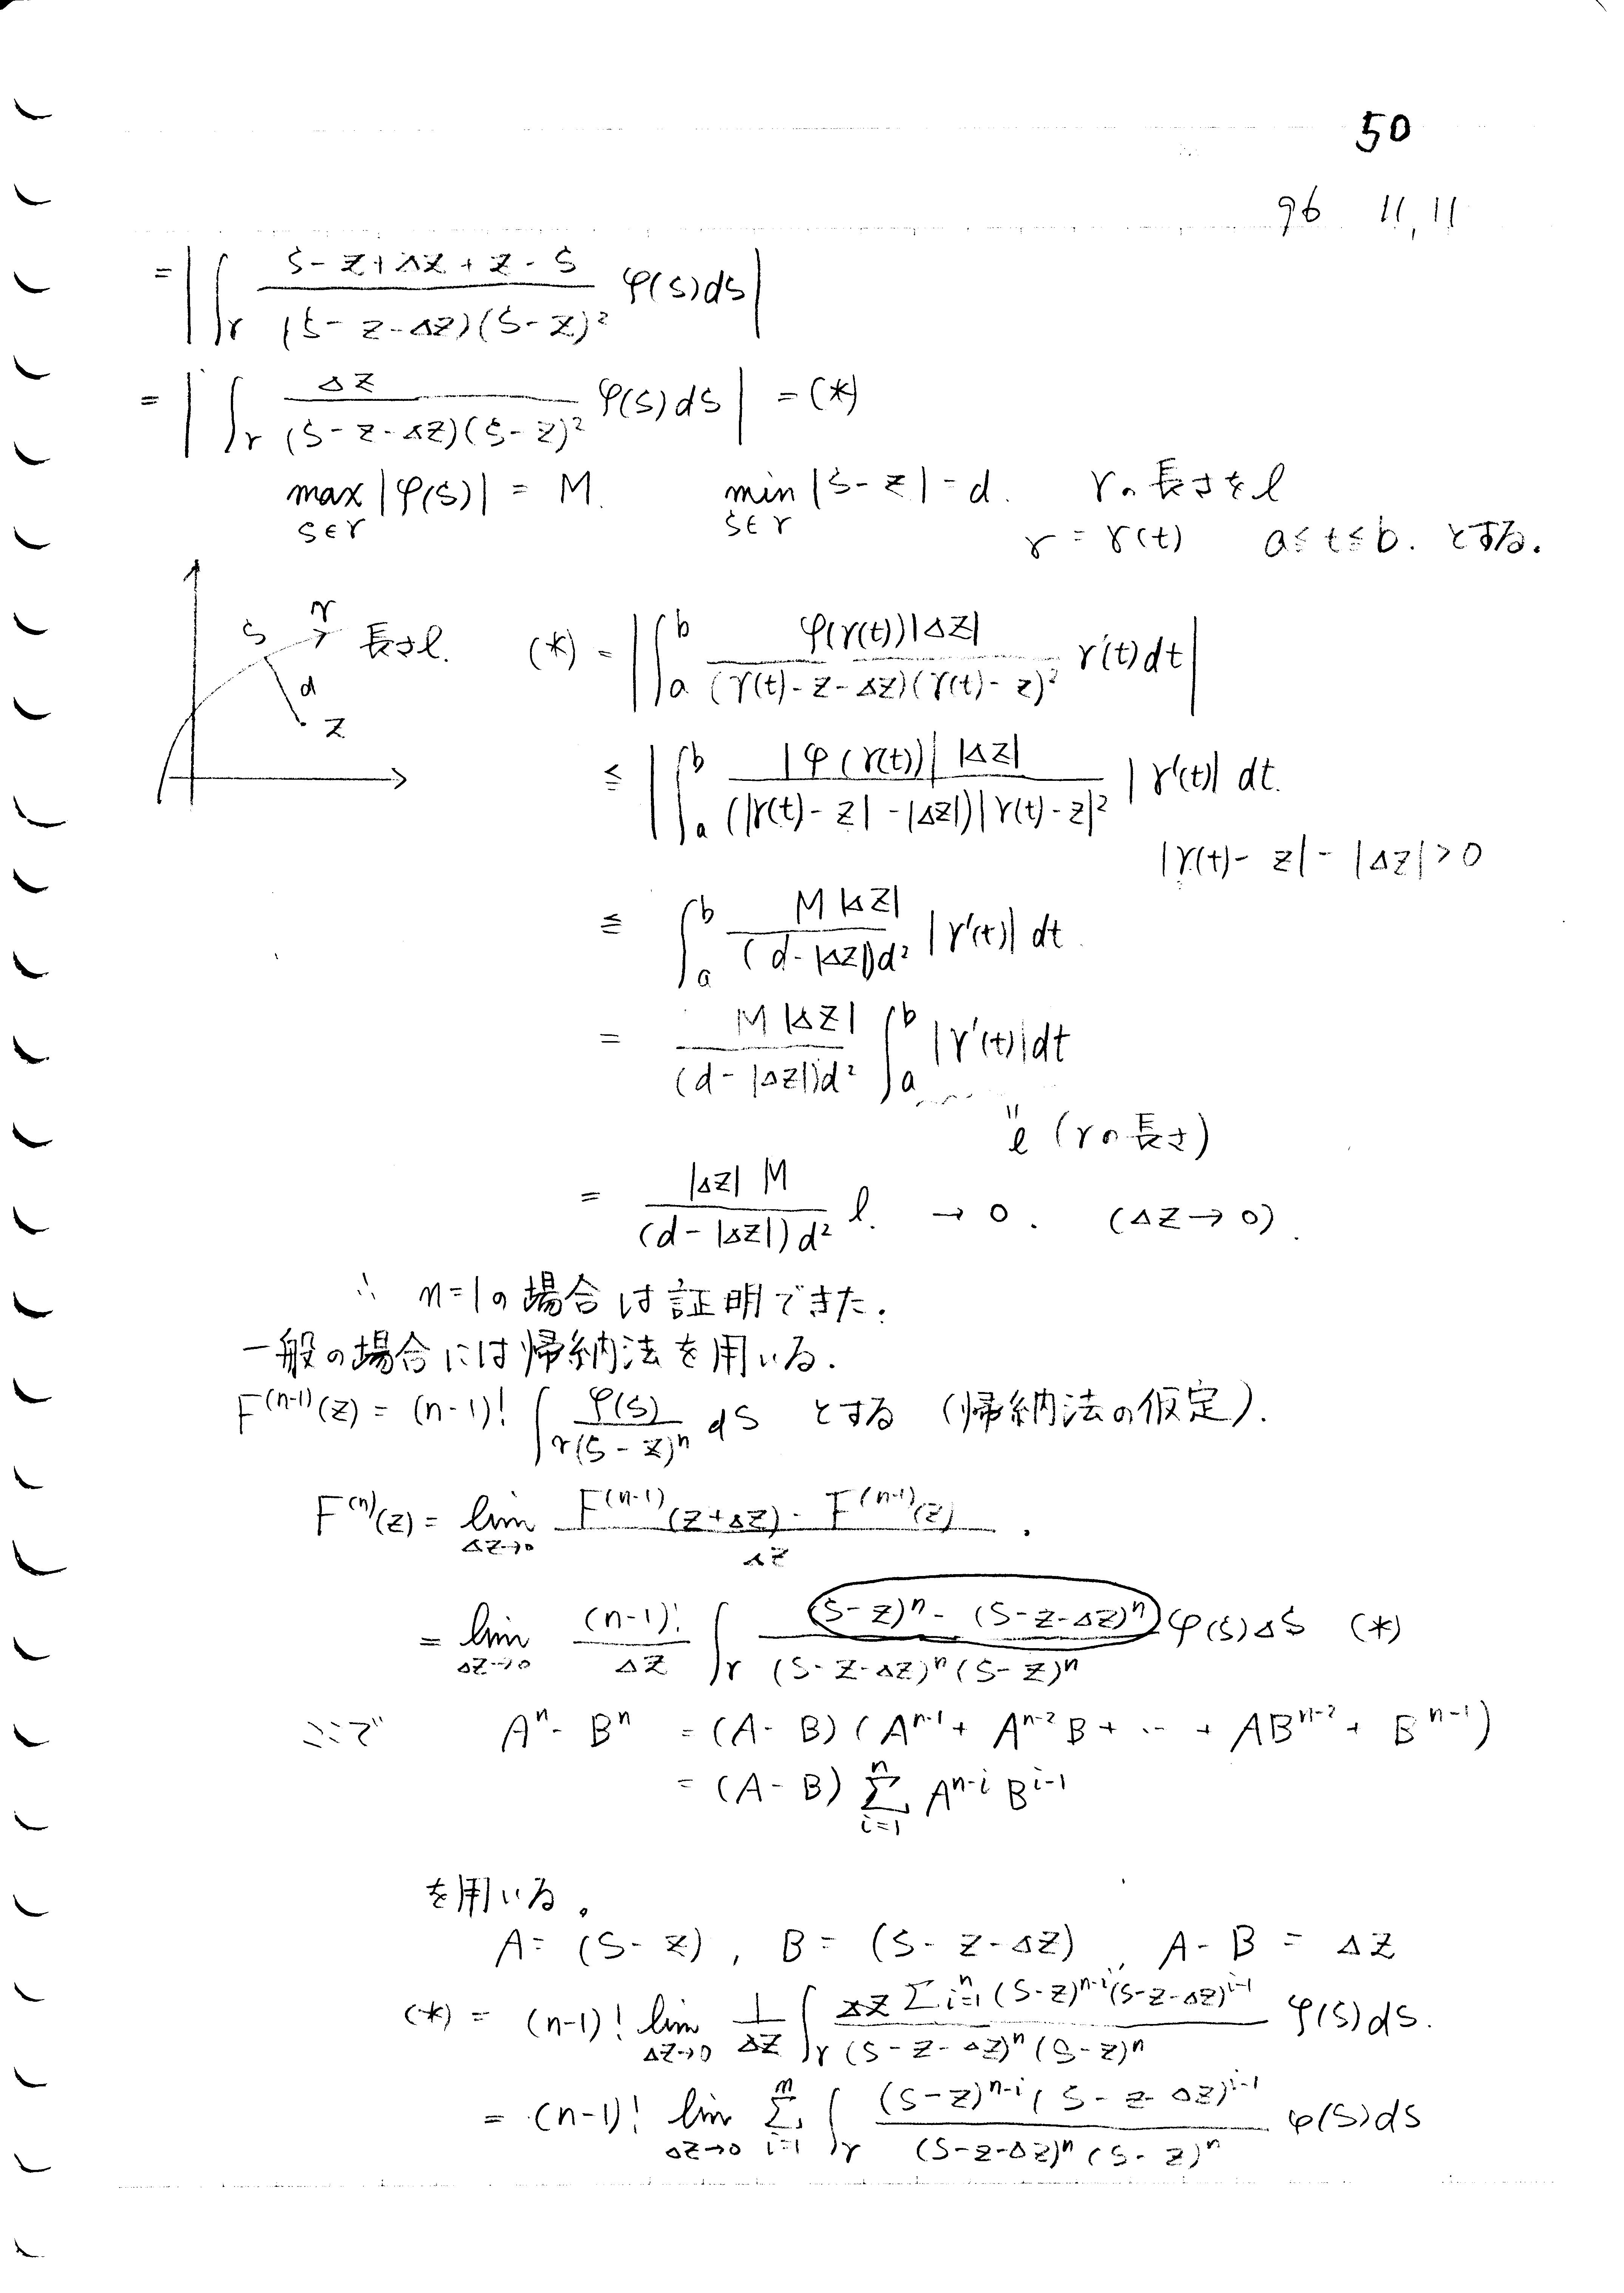 50
96 11,11
= | ∫_γ (ζ-z+Δz+z-ζ)/((ζ-z-Δz)(ζ-z)²) φ(ζ)dζ |
= | ∫_γ Δz/((ζ-z-Δz)(ζ-z)²) φ(ζ)dζ | = (*)
max_{ζ∈γ} |φ(ζ)| = M. min_{ζ∈γ} |ζ-z| = d. γの長さをl
γ = γ(t) a≦t≦b. とする.
ζ γ 長さl. d z
(*) = | ∫_a^b φ(γ(t))|Δz|/((γ(t)-z-Δz)(γ(t)-z)²) γ'(t)dt |
≦ | ∫_a^b |φ(γ(t))| |Δz|/((|γ(t)-z|-|Δz|)|γ(t)-z|²) |γ'(t)| dt.
|γ(t)-z|-|Δz|>0
≦ ∫_a^b M|Δz|/((d-|Δz|)d²) |γ'(t)| dt
= M|Δz|/((d-|Δz|)d²) ∫_a^b |γ'(t)|dt
" l (γの長さ)
= |Δz| M/((d-|Δz|)d²) l. → 0. (Δz→0).
∴ n=1の場合は証明できた.
一般の場合には帰納法を用いる.
F^{(n-1)}(z) = (n-1)! ∫_γ φ(ζ)/(ζ-z)^n dζ とする (帰納法の仮定).
F^{(n)}(z) = lim_{Δz→0} (F^{(n-1)}(z+Δz) - F^{(n-1)}(z))/Δz .
= lim_{Δz→0} (n-1)!/Δz ∫_γ ((ζ-z)^n - (ζ-z-Δz)^n)/((ζ-z-Δz)^n(ζ-z)^n) φ(ζ)Δζ (*)
ここで A^n - B^n = (A-B)(A^{n-1} + A^{n-2}B + … + AB^{n-2} + B^{n-1})
= (A-B) Σ_{i=1}^n A^{n-i} B^{i-1}
を用いる。
A = (ζ-z), B = (ζ-z-Δz), A-B = Δz
(*) = (n-1)! lim_{Δz→0} 1/Δz ∫_γ Δz Σ_{i=1}^n (ζ-z)^{n-i}(ζ-z-Δz)^{i-1}/((ζ-z-Δz)^n(ζ-z)^n) φ(ζ)dζ.
= (n-1)! lim_{Δz→0} Σ_{i=1}^n ∫_γ (ζ-z)^{n-i}(ζ-z-Δz)^{i-1}/((ζ-z-Δz)^n(ζ-z)^n) φ(ζ)dζ